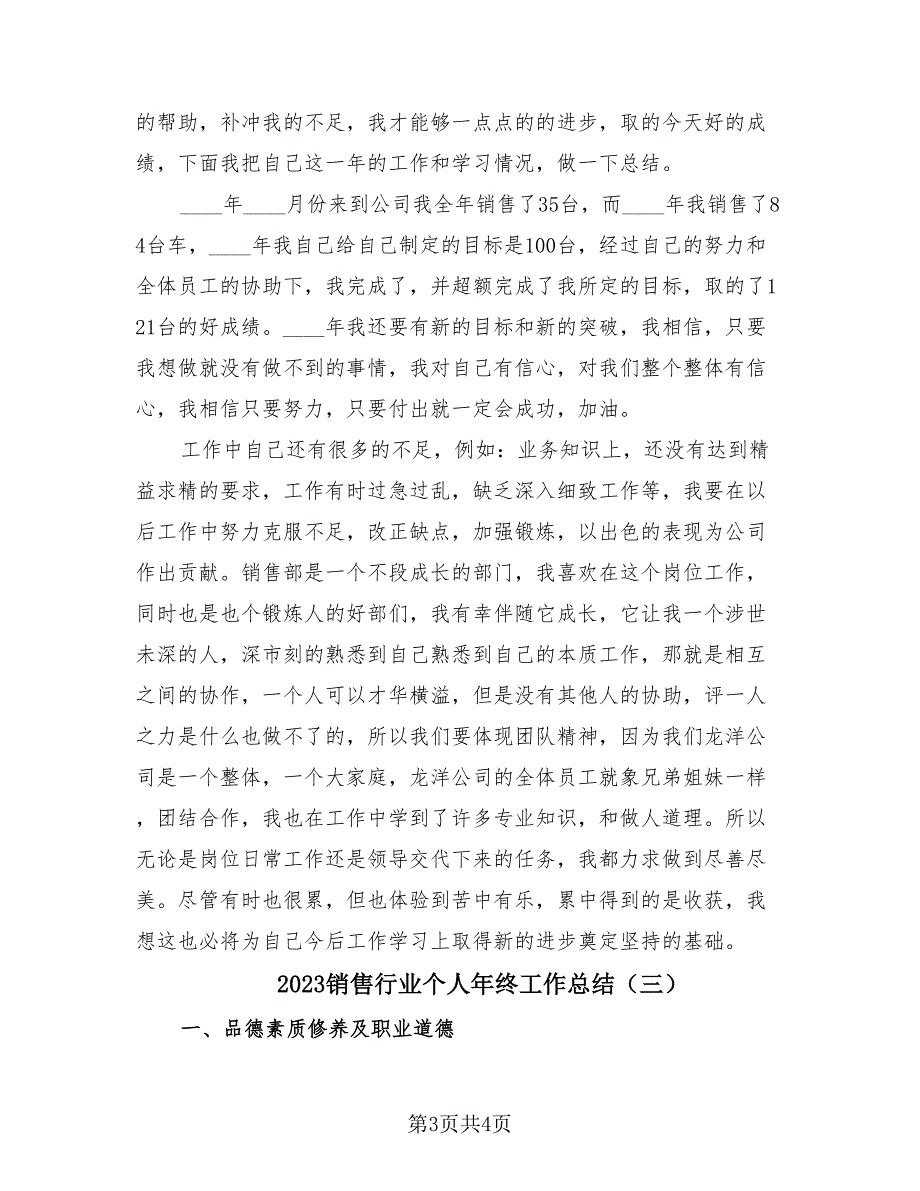 的帮助，补冲我的不足，我才能够一点点的的进步，取的今天好的成
绩，下面我把自己这一年的工作和学习情况，做一下总结。
____年____月份来到公司我全年销售了35台，而____年我销售了8
4台车，____年我自己给自己制定的目标是100台，经过自己的努力和
全体员工的协助下，我完成了，并超额完成了我所定的目标，取的了1
21台的好成绩。____年我还要有新的目标和新的突破，我相信，只要
我想做就没有做不到的事情，我对自己有信心，对我们整个整体有信
心，我相信只要努力，只要付出就一定会成功，加油。
工作中自己还有很多的不足，例如：业务知识上，还没有达到精
益求精的要求，工作有时过急过乱，缺乏深入细致工作等，我要在以
后工作中努力克服不足，改正缺点，加强锻炼，以出色的表现为公司
作出贡献。销售部是一个不段成长的部门，我喜欢在这个岗位工作，
同时也是也个锻炼人的好部们，我有幸伴随它成长，它让我一个涉世
未深的人，深市刻的熟悉到自己熟悉到自己的本质工作，那就是相互
之间的协作，一个人可以才华横溢，但是没有其他人的协助，评一人
之力是什么也做不了的，所以我们要体现团队精神，因为我们龙洋公
司是一个整体，一个大家庭，龙洋公司的全体员工就象兄弟姐妹一样
，团结合作，我也在工作中学到了许多专业知识，和做人道理。所以
无论是岗位日常工作还是领导交代下来的任务，我都力求做到尽善尽
美。尽管有时也很累，但也体验到苦中有乐，累中得到的是收获，我
想这也必将为自己今后工作学习上取得新的进步奠定坚持的基础。
2023销售行业个人年终工作总结（三）
一、品德素质修养及职业道德
第3页共4页